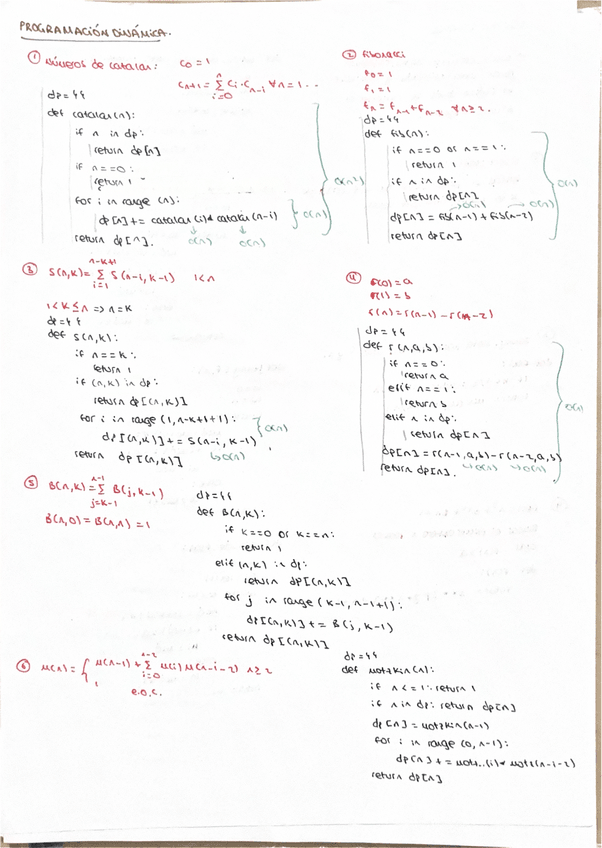 PROGRAMACIÓN DINÁMICA.
① Números de catalan:
C₀ = 1
Cₙ₊₁ = Σ_{i=0}^{n} Cᵢ · Cₙ₋ᵢ ∀n = 1 ...
dp = {}
def catalan(n):
if n in dp:
return dp[n]
if n == 0:
return 1
for i in range (n):
dp[n] += catalan(i) * catalan(n-i)
return dp[n].
O(n)
O(n)
O(n)
O(n²)
② Fibonacci
F₀ = 1
F₁ = 1
Fₙ = Fₙ₋₁ + Fₙ₋₂ ∀n ≥ 2.
dp = {}
def fib(n):
if n == 0 or n == 1:
return 1
if n in dp:
return dp[n]
dp[n] = fib(n-1) + fib(n-2)
return dp[n]
O(n)
③ S(n,k) = Σ_{i=1}^{n-k+1} S(n-i, k-1) 1<n
1 < k ≤ n => n = k
dp = {}
def S(n,k):
if n == k:
return 1
if (n,k) in dp:
return dp[(n,k)]
for i in range (1, n-k+1+1):
dp[(n,k)] += S(n-i, k-1)
return dp[(n,k)]
O(n)
↳ O(n)
④ r(0) = a
r(1) = b
r(n) = r(n-1) - r(n-2)
dp = {}
def r(n,a,b):
if n == 0:
return a
elif n == 1:
return b
elif n in dp:
return dp[n]
dp[n] = r(n-1,a,b) - r(n-2,a,b)
return dp[n].
↳ O(n) ↳ O(n)
⑤ B(n,k) = Σ_{j=k-1}^{n-1} B(j, k-1)
B(n,0) = B(n,n) = 1
dp = {}
def B(n,k):
if k == 0 or k == n:
return 1
elif (n,k) in dp:
return dp[(n,k)]
for j in range (k-1, n-1+1):
dp[(n,k)] += B(j, k-1)
return dp[(n,k)]
⑥ M(n) = { M(n-1) + Σ_{i=0}^{n-2} M(i) M(n-i-2) n ≥ 2
1 e.o.c.
dp = {}
def motzkin(n):
if n <= 1: return 1
if n in dp: return dp[n]
dp[n] = motzkin(n-1)
for i in range (0, n-1):
dp[n] += motz..(i) * motz(n-i-2)
return dp[n]